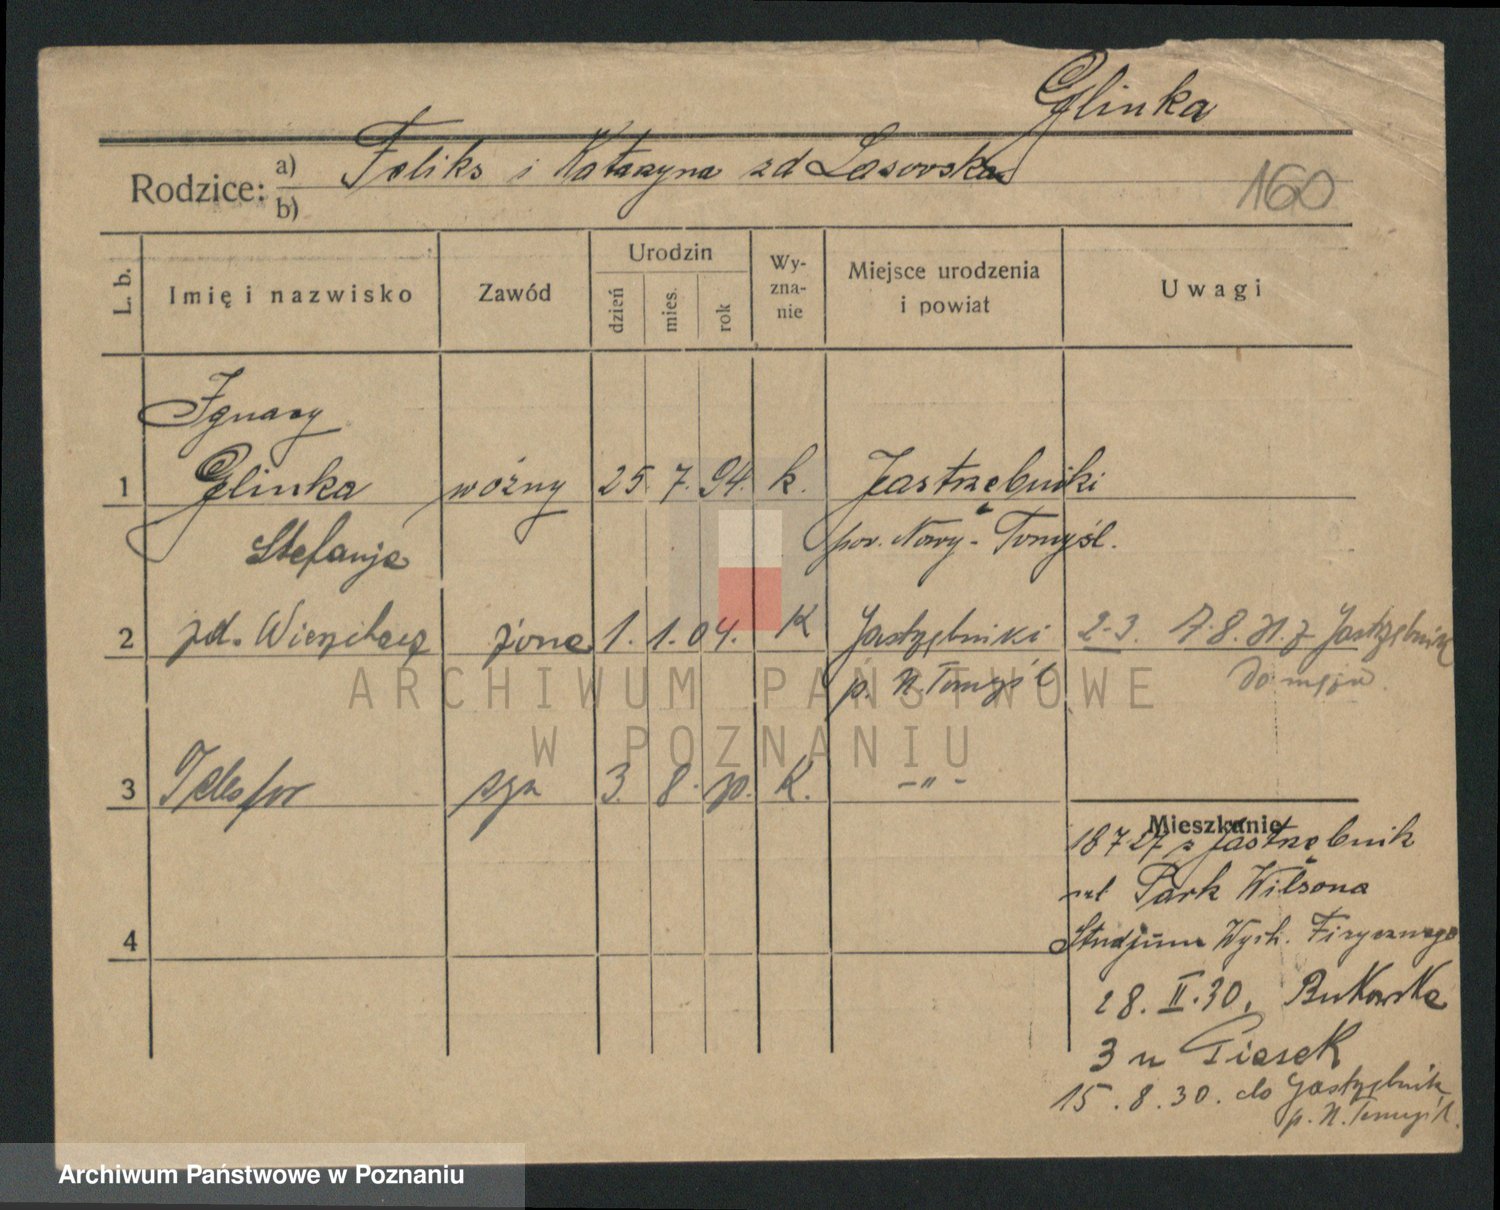 Glinka
Rodzice: a) Feliks i Katarzyna zd Lasowska
b)
160
L. b.
Imię i nazwisko
Zawód
Urodzin
dzień
mies.
rok
Wy-
zna-
nie
Miejsce urodzenia
i powiat
Uwagi
Ignacy
1 Glinka woźny 25. 7. 94. k. Jastrzębniki
pow. Nowy-Tomyśl.
Stefanja
2 zd. żona 1. 1. 04. K Jastrzębniki 2-3. 7.8. z Jastrzębnik
p. N. Tomyśl do męża.
3 Telesfor syn 3. 8. K. -"-
4
Mieszkanie
18 7 27 z Jastrzębnik
Park Wilsona
Studjum Wych. Fizycznego
28. II. 30. Bukowska
3 u Piasek
15. 8. 30. do Jastrzębnik
p. N. Tomyśl.
ARCHIWUM PAŃSTWOWE
W POZNANIU
Archiwum Państwowe w Poznaniu